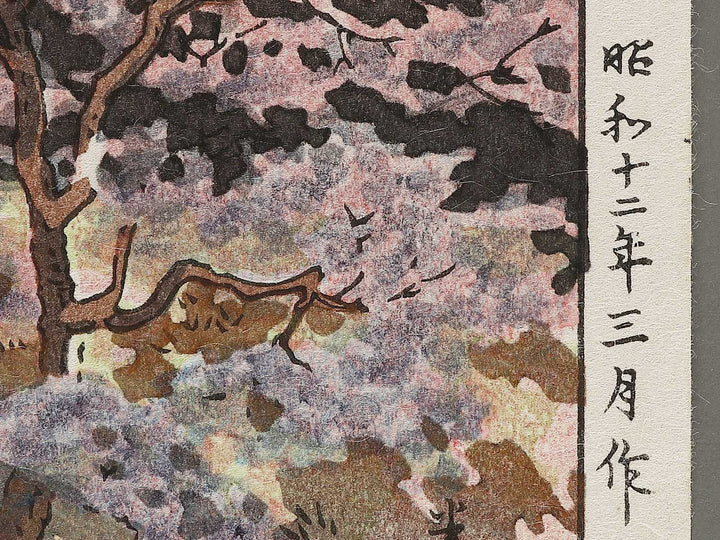 昭和十二年三月作